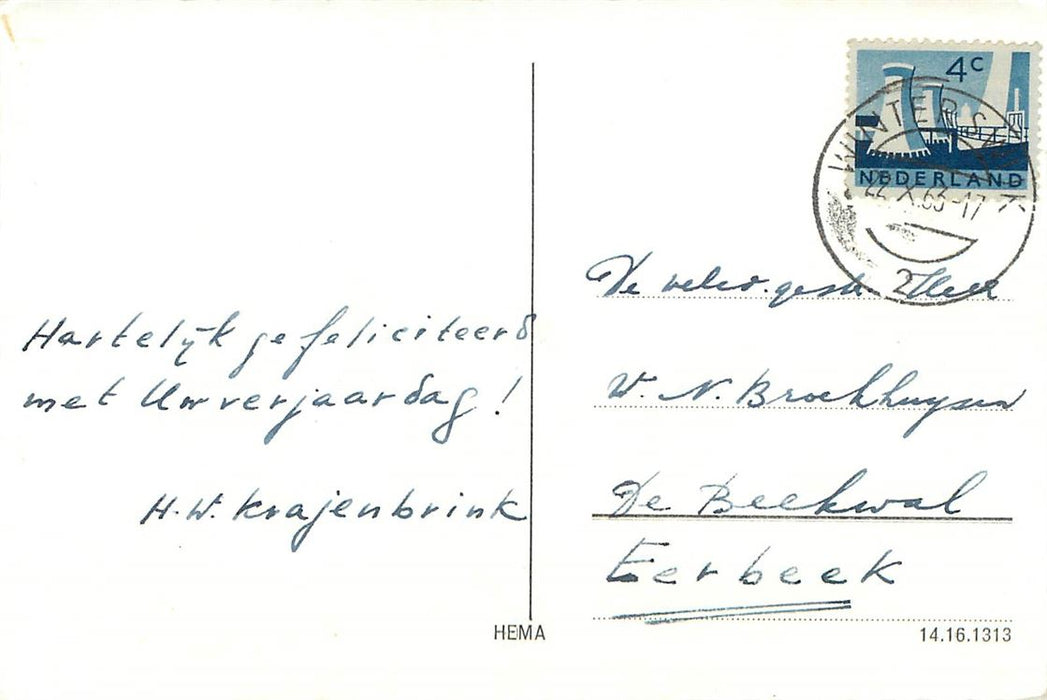 Hartelijk gefeliciteerd
met Uw verjaardag!
H.W. Krajenbrink
4c
NEDERLAND
WINTERSWIJK
22.X.63-17
2
De weled. gestr. Heer
W. N. Broekhuysen
De Beekwal
Eerbeek
HEMA
14.16.1313